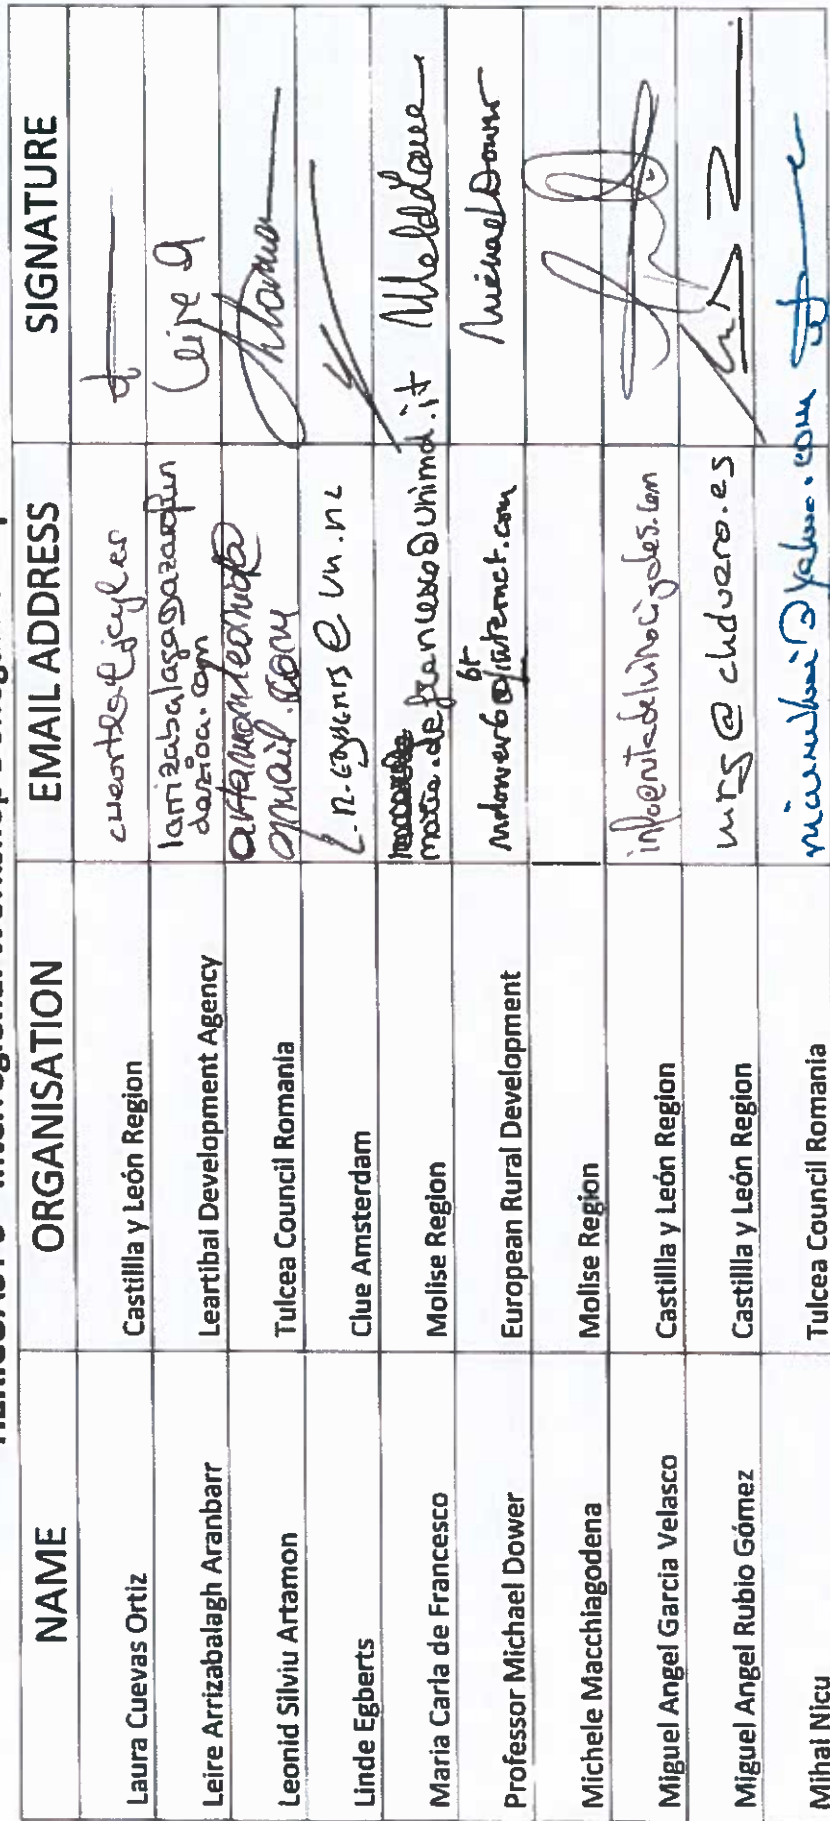 NAME ORGANISATION EMAIL ADDRESS SIGNATURE
Laura Cuevas Ortiz Castillla y León Region
Leire Arrizabalagh Aranbarr Leartibal Development Agency Leire A
Leonid Silviu Artamon Tulcea Council Romania artamonleonid@
gmail.com
Linde Egberts Clue Amsterdam
Maria Carla de Francesco Molise Region maria.defrancesco@unimol.it
Professor Michael Dower European Rural Development mdower6@btinternet.com Michael Dower
Michele Macchiagodena Molise Region
Miguel Angel Garcia Velasco Castillla y León Region info@rutadelvinocigales.com
Miguel Angel Rubio Gómez Castillla y León Region mrg@chduero.es
Mihai Nicu Tulcea Council Romania nicumihai@yahoo.com